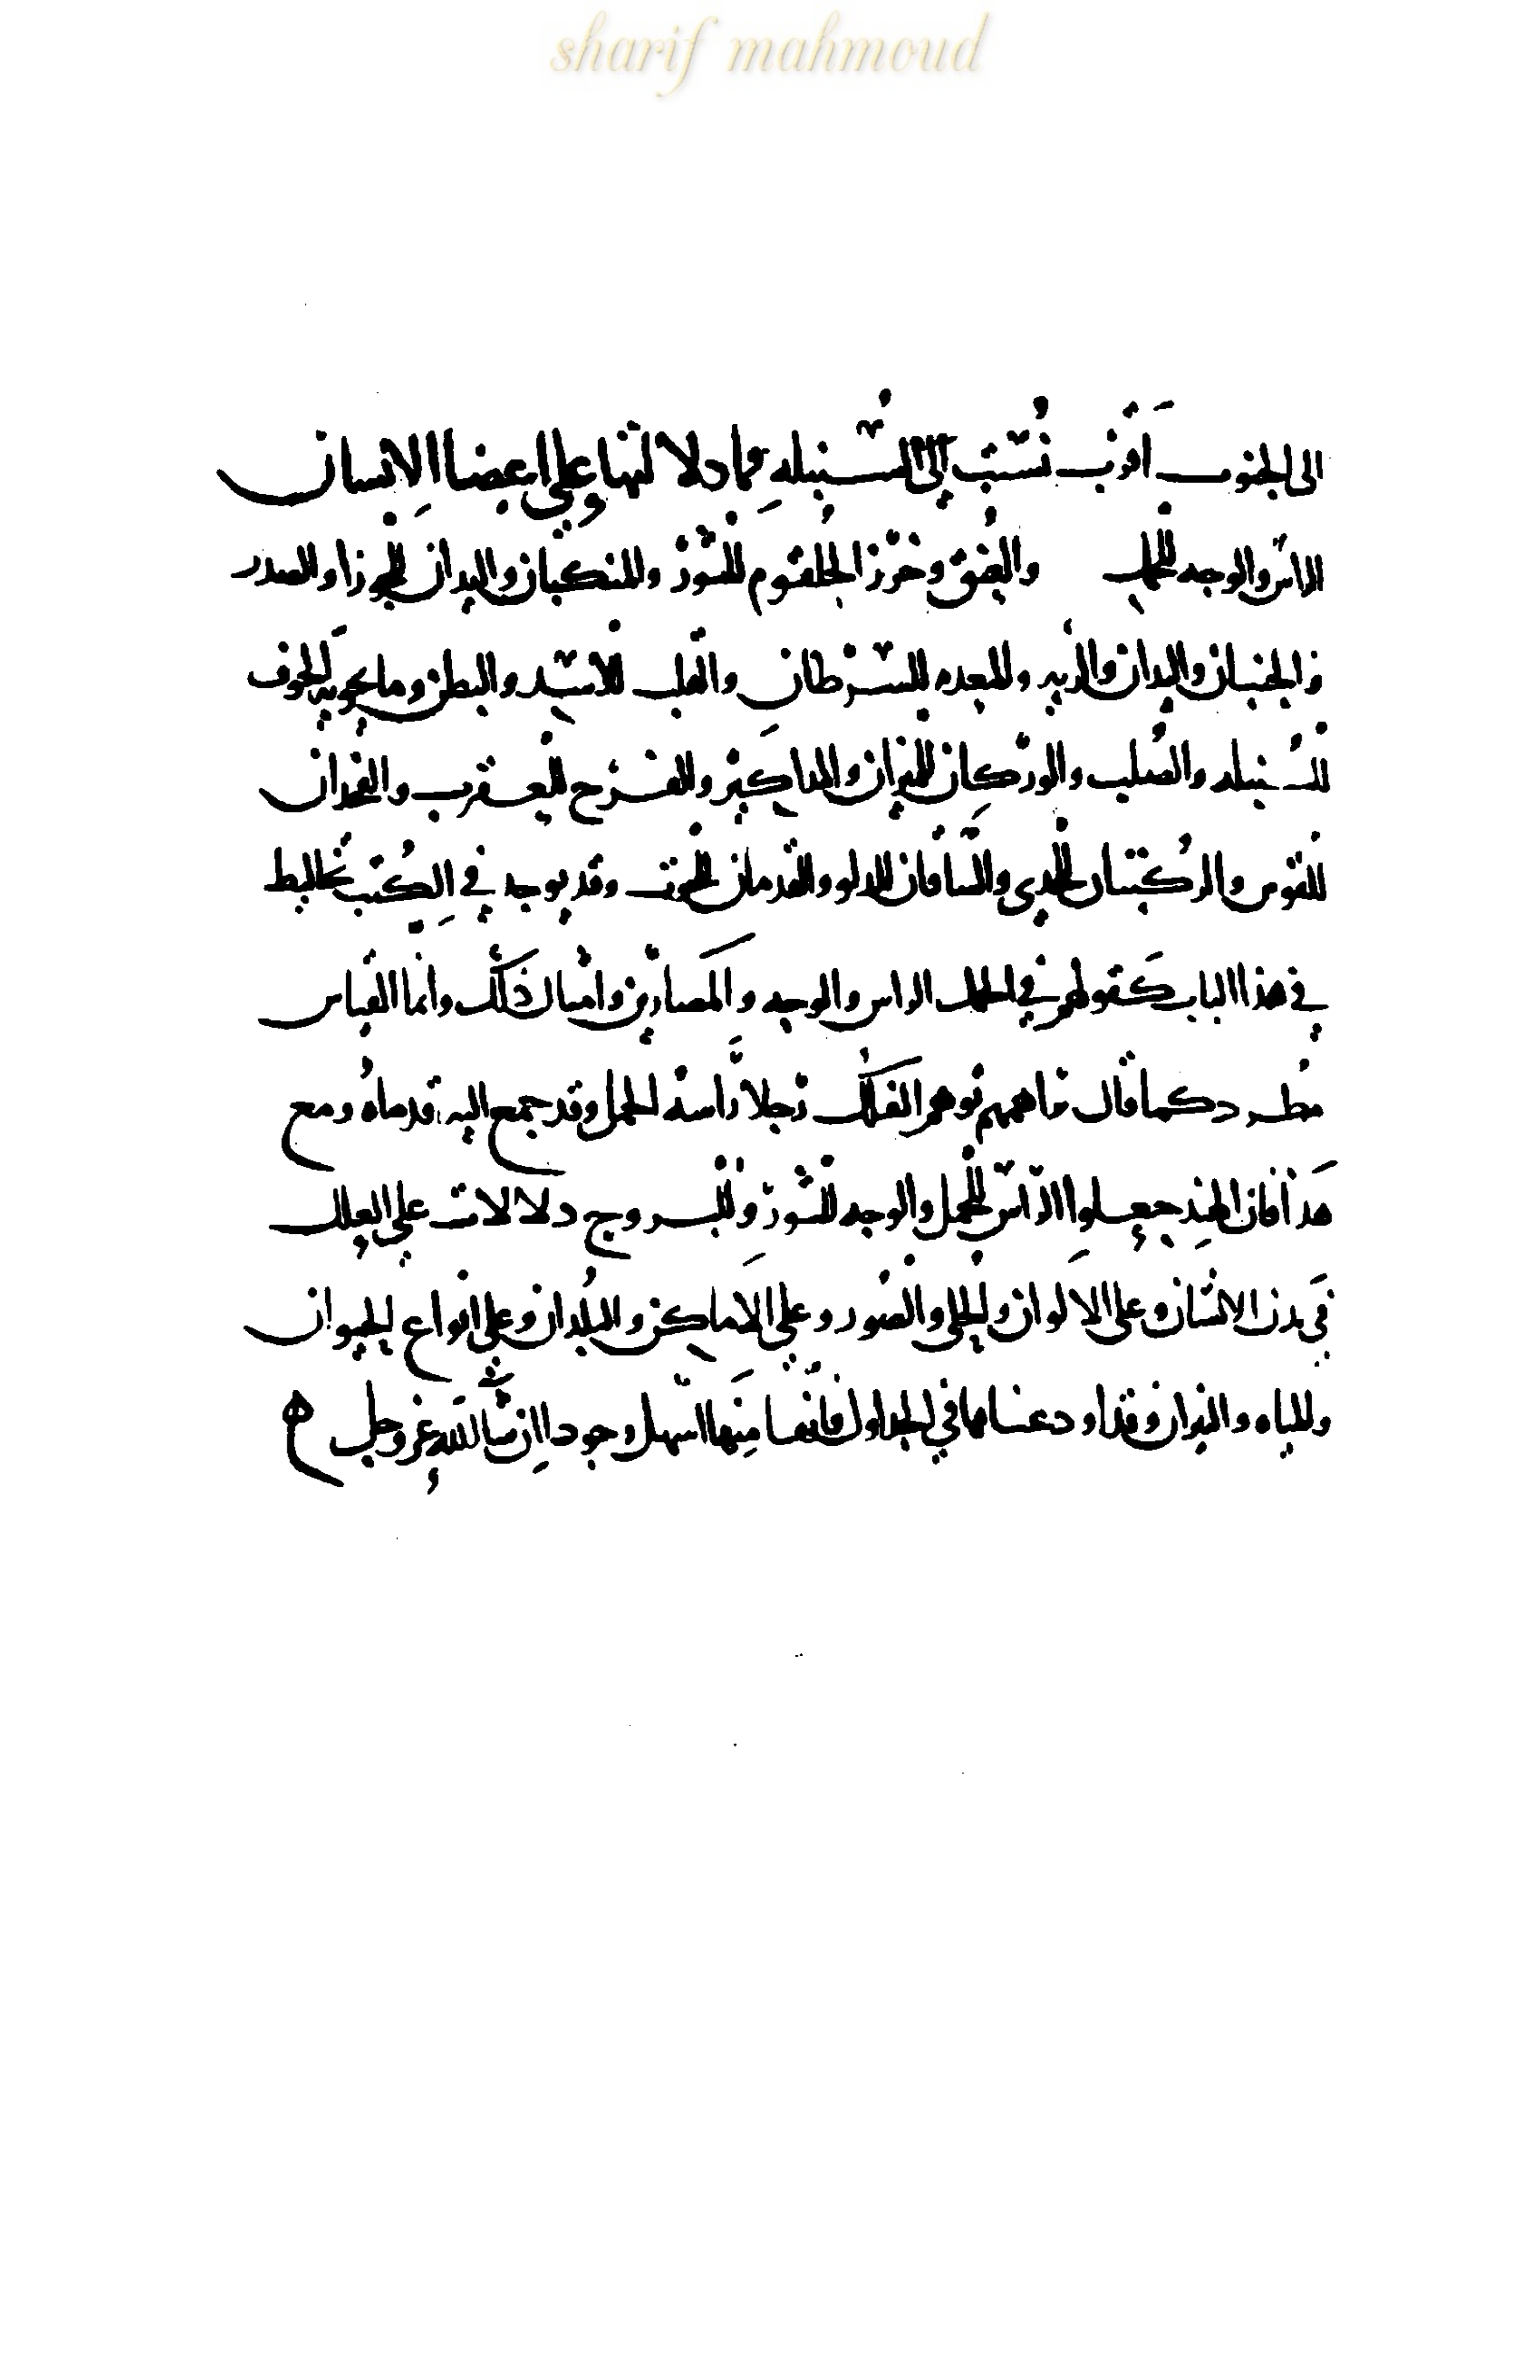 sharif mahmoud
الى الجنوب اقرب نسبت الى السنبله فما دلالتها على اعضا الانسان
الراس والوجه للحمل والعنق وخرز الحلقوم للثور والمنكبان واليدان للجوزا والصدر
والجنبان والبدان والريه والمعده للسرطان والقلب للاسد والبطن وما يحويه الجوف
للسنبله والصلب والوركان للميزان والمذاكير والفرج للعقرب والفخذان
للقوس والركبتان للجدى والساقان للدلو والقدمان للحوت وقد يوجد في الكتب تخاليط
في هذا الباب كقولهم في الحمل الراس والوجه والمصارين وامثال ذلك وانما القياس
مطرد كما قال توهم الفلك رجلا راسه الحمل وقد جمع اليه قدماه ومع
هذا فان الهند جعلوا الراس للحمل والوجه للثور وللبروج دلالات على العلل
في بدن الانسان وعلى الالوان والحلى والصور وعلى الاماكن والبلدان وعلى انواع الحيوان
والمياه والنيران وقد اودعناها في الجداول فانها منها اسهل وجودا ان شا الله عز وجل ه